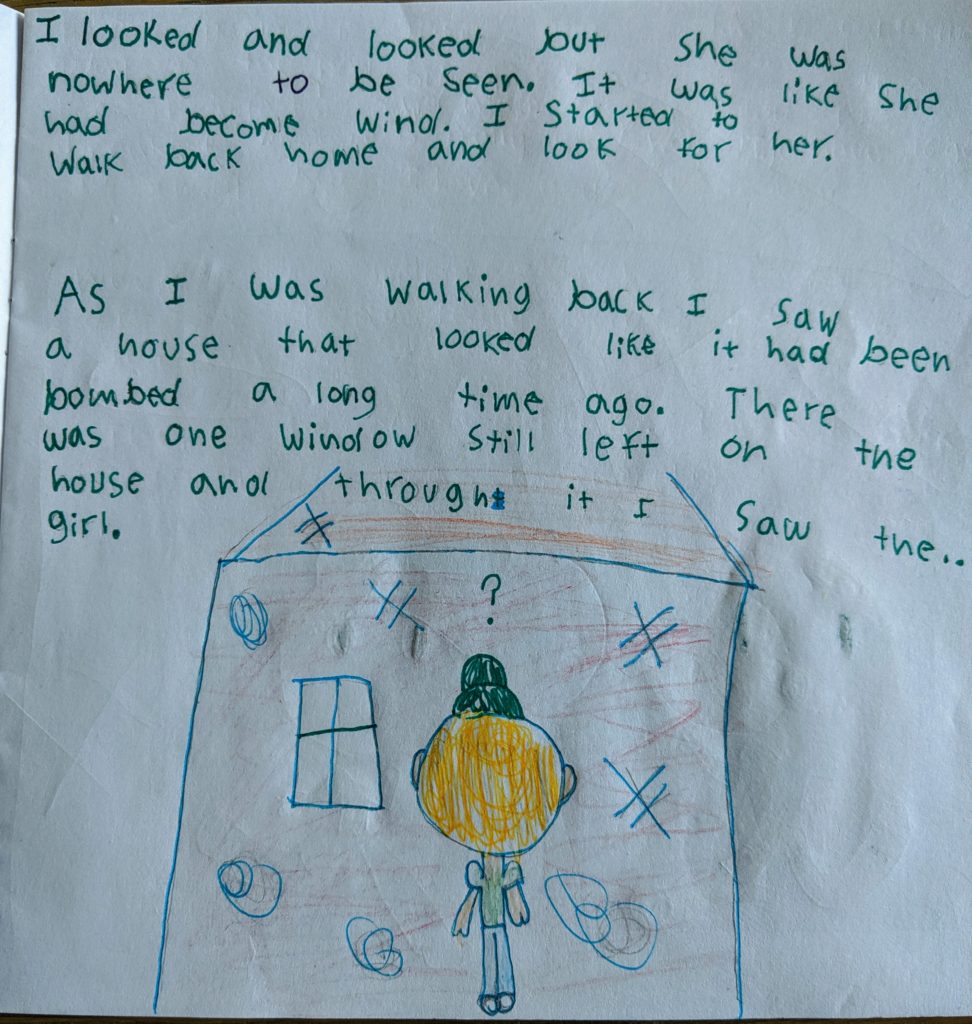 I looked and looked but she was
nowhere to be seen. It was like she
had become wind. I started to
walk back home and look for her.
As I was walking back I saw
a house that looked like it had been
bombed a long time ago. There
was one window still left on the
house and through it I saw the..
girl.
?